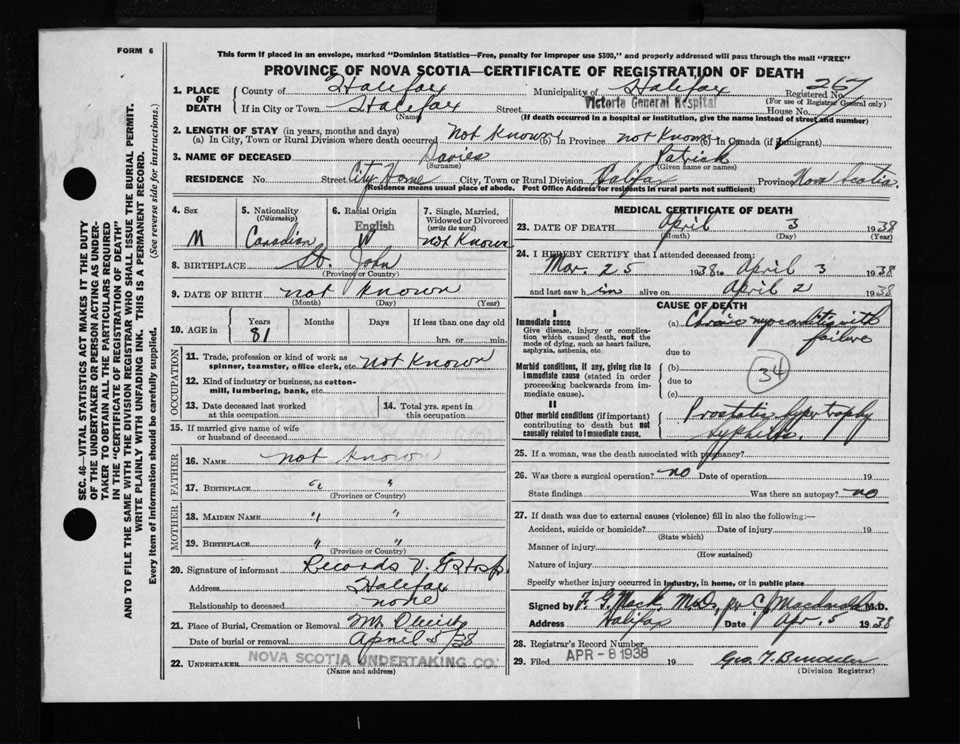 FORM 6
This form if placed in an envelope, marked "Dominion Statistics—Free, penalty for improper use $300," and properly addressed will pass through the mail "FREE"
PROVINCE OF NOVA SCOTIA—CERTIFICATE OF REGISTRATION OF DEATH
1. PLACE OF DEATH County of Halifax Municipality of Halifax Registered No. 267
If in City or Town Halifax Street Victoria General Hospital House No. (For use of Registrar General only)
(Name) (If death occurred in a hospital or institution, give the name instead of street and number)
2. LENGTH OF STAY (in years, months and days)
(a) In City, Town or Rural Division where death occurred not known (b) In Province not known (c) In Canada (if immigrant)
3. NAME OF DECEASED Davies Patrick
(Surname) (Given name or names)
RESIDENCE No. Street City Home City, Town or Rural Division Halifax Province Nova Scotia
(Residence means usual place of abode. Post Office Address for residents in rural parts not sufficient)
4. Sex M
5. Nationality (Citizenship) Canadian
6. Racial Origin English W
7. Single, Married, Widowed or Divorced (write the word) not known
8. BIRTHPLACE St. John
(Province or Country)
9. DATE OF BIRTH not known
(Month) (Day) (Year)
10. AGE in Years 81 Months Days If less than one day old
hrs. or min.
OCCUPATION
11. Trade, profession or kind of work as spinner, teamster, office clerk, etc. not known
12. Kind of industry or business, as cotton-mill, lumbering, bank, etc.
13. Date deceased last worked at this occupation
14. Total yrs. spent in this occupation
15. If married give name of wife or husband of deceased
FATHER
16. NAME not known
17. BIRTHPLACE " "
(Province or Country)
MOTHER
18. MAIDEN NAME " "
19. BIRTHPLACE " "
(Province or Country)
20. Signature of informant Records V. G. Hosp.
Address Halifax
Relationship to deceased none
21. Place of Burial, Cremation or Removal Mt. Olivet
Date of burial or removal April 5/38
22. UNDERTAKER NOVA SCOTIA UNDERTAKING CO.
(Name and address)
MEDICAL CERTIFICATE OF DEATH
23. DATE OF DEATH April 3 1938
(Month) (Day) (Year)
24. I HEREBY CERTIFY that I attended deceased from:
Mar. 25 1938 to April 3 1938
and last saw him alive on April 2 1938
CAUSE OF DEATH
I
Immediate cause (a) Chronic myocarditis with failure
Give disease, injury or complication which caused death, not the mode of dying, such as heart failure, asphyxia, asthenia, etc.
due to
Morbid conditions, if any, giving rise to immediate cause (stated in order proceeding backwards from immediate cause).
(b)
due to
(c)
34
II
Other morbid conditions (if important) contributing to death but not causally related to immediate cause.
Prostatic hypertrophy
syphilis.
25. If a woman, was the death associated with pregnancy?
26. Was there a surgical operation? no Date of operation 19
State findings Was there an autopsy? no
27. If death was due to external causes (violence) fill in also the following:—
Accident, suicide or homicide? Date of injury 19
(State which)
Manner of injury
(How sustained)
Nature of injury
Specify whether injury occurred in industry, in home, or in public place
Signed by F. G. Mack M.D. per C. J. M.D.
Address Halifax Date Apr. 5 1938
28. Registrar's Record Number
29. Filed APR - 8 1938 19
(Division Registrar)
SEC. 46—VITAL STATISTICS ACT MAKES IT THE DUTY
OF THE UNDERTAKER OR PERSON ACTING AS UNDER-
TAKER TO OBTAIN ALL THE PARTICULARS REQUIRED
IN THE "CERTIFICATE OF REGISTRATION OF DEATH"
AND TO FILE THE SAME WITH THE DIVISION REGISTRAR WHO SHALL ISSUE THE BURIAL PERMIT.
WRITE PLAINLY WITH UNFADING INK. THIS IS A PERMANENT RECORD.
Every item of information should be carefully supplied. (See reverse side for instructions.)